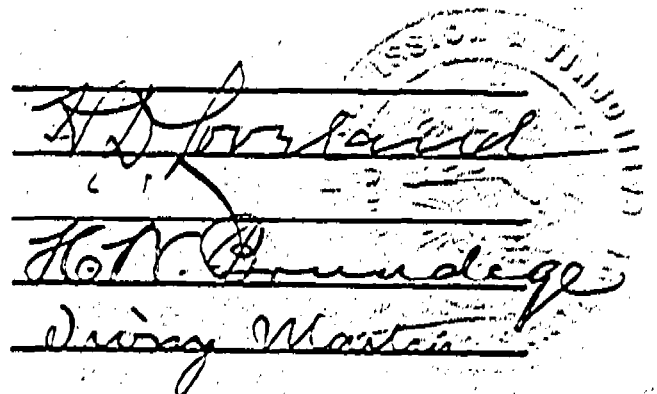 H. D. Loveland
H. W. Brundige
Irving Martin